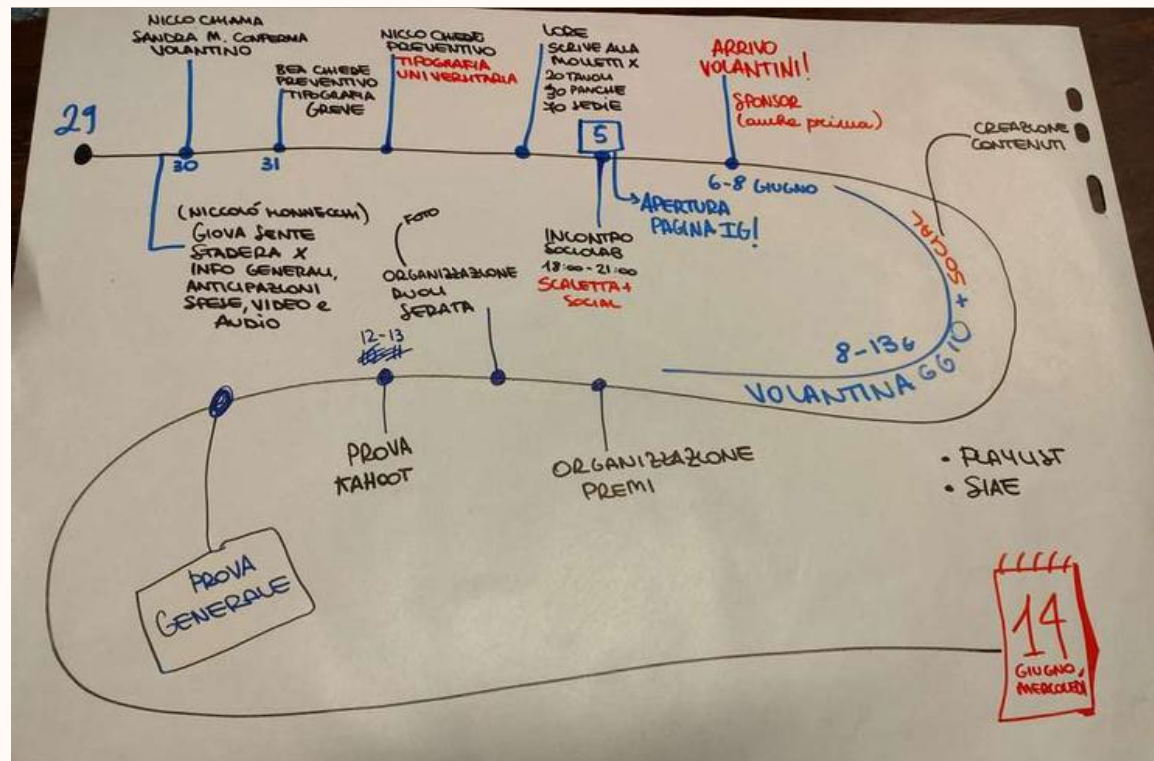 29
NICCO CHIAMA
SANDRA M. CONFERMA
VOLANTINO
30
BEA CHIEDE
PREVENTIVO
TIPOGRAFIA
GREVE
31
NICCO CHIEDE
PREVENTIVO
TIPOGRAFIA
UNIVERSITARIA
LORE
SCRIVE ALLA
MOLLETTI X
20 TAVOLI
30 PANCHE
70 SEDIE
5
ARRIVO
VOLANTINI!
SPONSOR
(anche prima)
6-8 GIUGNO
CREAZIONE
CONTENUTI
(NICCOLÓ MONNECCHI)
GIOVA SENTE
STADERA X
INFO GENERALI,
ANTICIPAZIONI
SPESE, VIDEO e
AUDIO
APERTURA
PAGINA IG!
INCONTRO
SOCIOLAB
18:00-21:00
SCALETTA+
SOCIAL
8-13G
VOLANTINAGGIO + SOCIAL
FOTO
ORGANIZZAZIONE
RUOLI
SERATA
12-13
PROVA
KAHOOT
ORGANIZZAZIONE
PREMI
• PLAYLIST
• SIAE
PROVA
GENERALE
14
GIUGNO,
MERCOLEDÌ